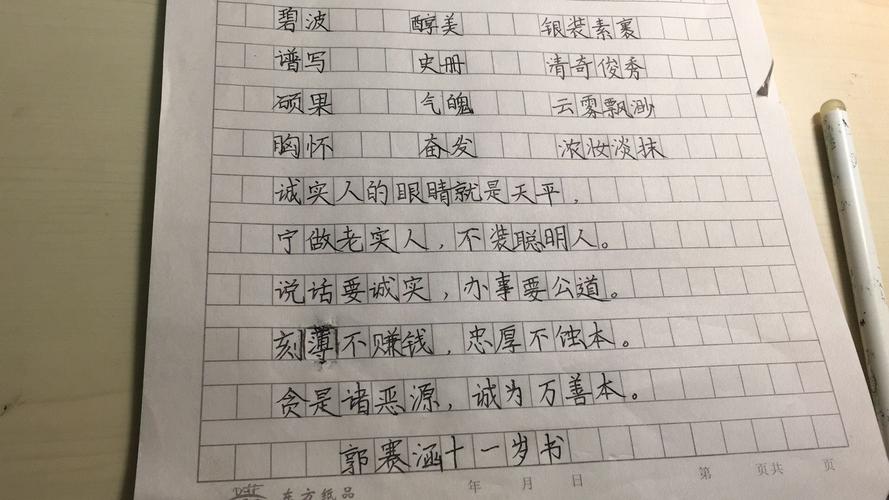 碧波 醇美 银装素裹
谱写 史册 清奇俊秀
硕果 气魄 云雾飘渺
胸怀 奋发 浓妆淡抹
诚实人的眼睛就是天平,
宁做老实人,不装聪明人。
说话要诚实,办事要公道。
刻薄不赚钱,忠厚不蚀本。
贪是诸恶源,诚为万善本。
郭赛涵十一岁书
东方纸品 年 月 日 第 页共 页